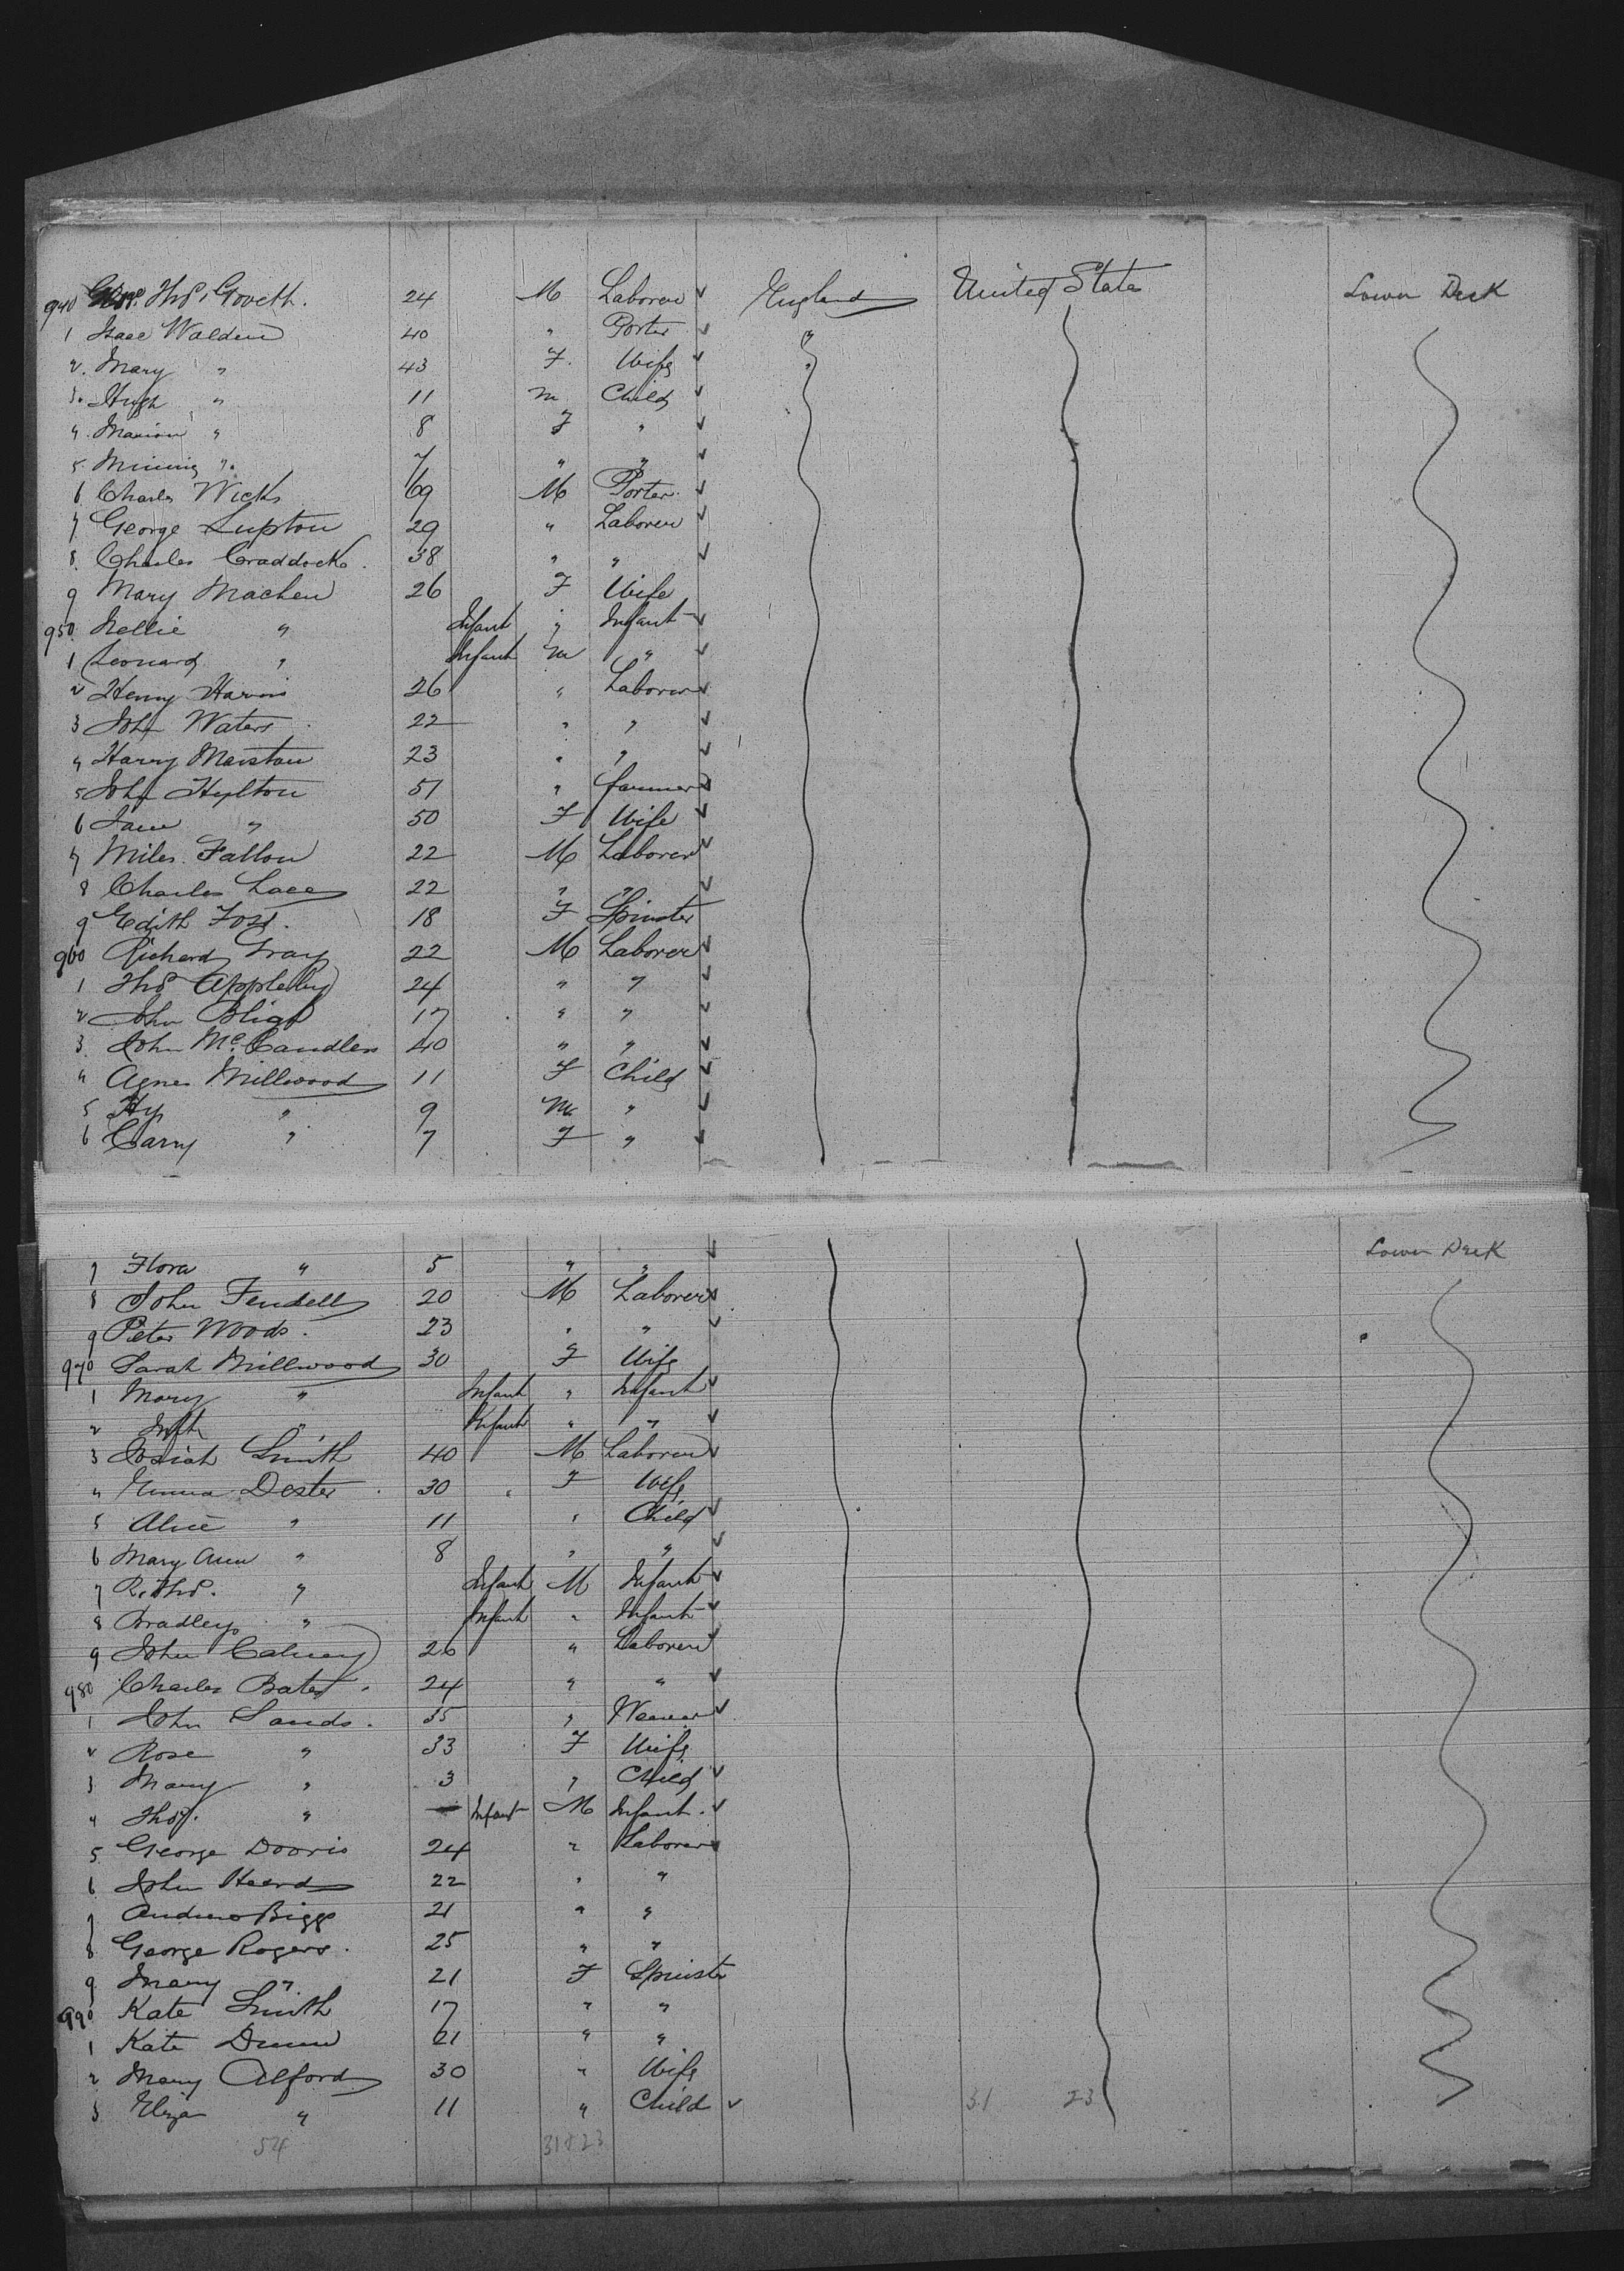 940 Thos. Goveth. 24 M Laborer ✓ England United States Lower Deck
1 Isaac Walden 40 " Porter ✓ "
2. Mary " 43 F. Wife ✓ "
3. Hugh " 11 m Child ✓
4. Marion " 8 F " ✓
5. Minnie ". 7 " " ✓
6 Charles Wicks 69 M Porter ✓
7 George Lupton 29 " Laborer ✓
8. Charles Craddock. 38 " " ✓
9 Mary Machen 26 F Wife
950. Nellie " Infant " Infant ✓
1 Leonard " Infant m " ✓
2 Henry Harris 26 " Laborer ✓
3 John Waters 22 " " ✓
4 Harry Marston 23 " " ✓
5 John Hylton 51 " farmer ✓
6 Jane " 50 F Wife ✓
7 Miles Fallon 22 M Laborer ✓
8 Charles Lace 22 " " ✓
9 Edith Ford. 18 F Spinster
960 Richard Gray 22 M Laborer ✓
1 Thos Appleby 24 " " ✓
2 John Bligh 17 " " ✓
3. John Mc.Candless 40 " " ✓
4 Agnes Millwood 11 F Child ✓
5 Hy " 9 m " ✓
6 Carry " 7 F " ✓
7 Flora " 5 " " ✓ Lower Deck
8 John Fendell 20 M Laborer ✓
9 Peter Woods. 23 " " ✓
970 Sarah Millwood 30 F Wife
1 Mary " Infant " Infant ✓
2 Inft " Infant " " ✓
3 Josiah Smith 40 M Laborer ✓
4 Emma Dester 30 " F Wife
5 Alice " 11 " Child ✓
6 Mary Ann " 8 " " ✓
7 Thos. " Infant M Infant ✓
8 Bradley " Infant " Infant ✓
9 John Calvey 26 " Laborer ✓
980 Charles Bates. 24 " " ✓
1 John Sands. 35 " Weaver ✓
2 Rose " 33 F Wife
3 Mary " 3 " Child ✓
4 Thos. " — Infant M Infant. ✓
5. George Dooris 24 " Laborer ✓
6 John Heard 22 " "
7 Andrew Biggs 21 " "
8 George Rogers. 25 " "
9 Mary " 21 F Spinster
990 Kate Smith 17 " "
1 Kate Dunn 21 " "
2 Mary Alford 30 " Wife
3 Eliza " 11 " Child ✓ 31 23
54 31 & 23